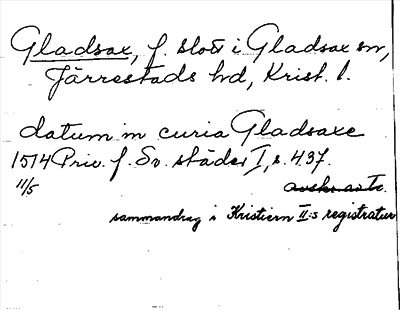 Gladsax, f. slott i Gladsax sn,
Järrestads hd, Krist. l.
datum in curia Gladsaxe
1514 Priv. f. Sv. städer I, s. 437.
11/5
avskr. av Tc.
sammandrag i Kristiern II:s registratur